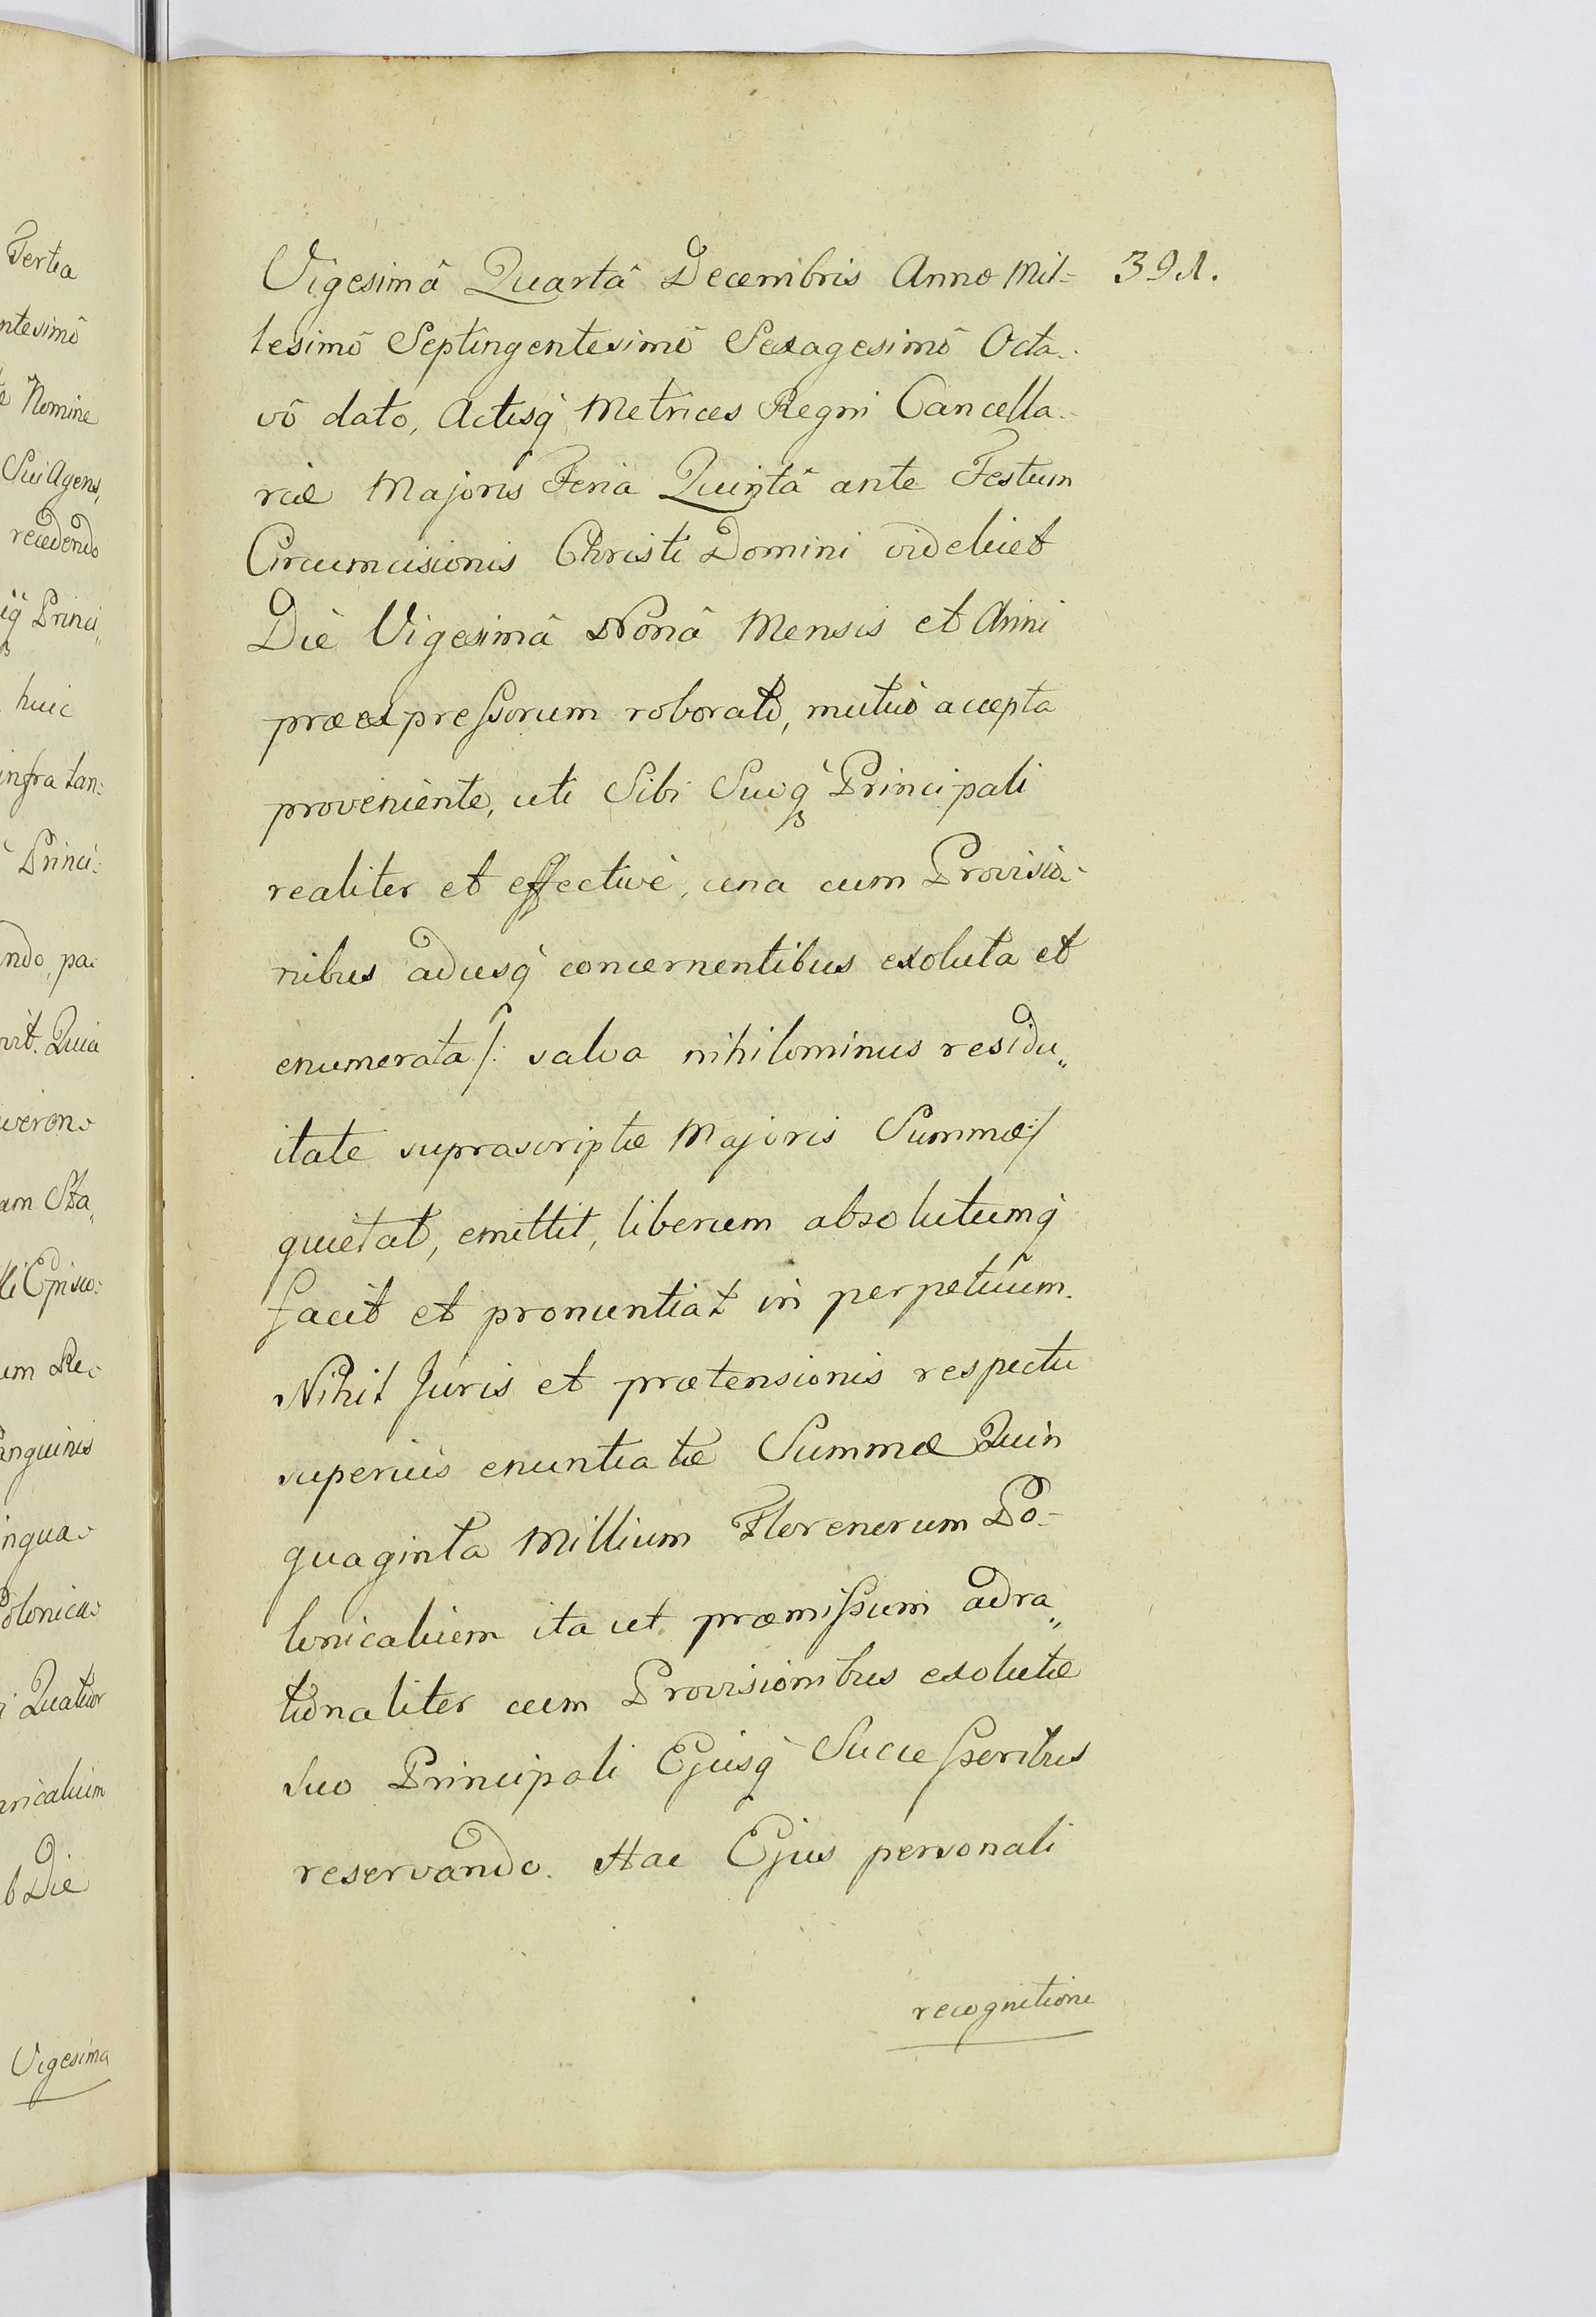 Tertia
ntesimô
Nomine
Sui Agens,
recedendo
Princi„
huic
infra tan:
Princi:
ndo, pa:
vit. Quia
am Sta„
li Episco:
um Re:
anguinis
ingua:
Polonica:
Quatuor
nicalium
Die
Vigesima
391.
Vigesimâ Quartâ Decembris Anno Mil-
lesimô Septingentesimô Sexagesimô Octa-
vô dato, Actisq̀ Metrices Regni Cancella-
riæ Majoris Feriâ Quintâ ante Festum
Circumcisionis Christi Domini videlicet
Diè Vigesimâ Nonâ Mensis et Anni
præexpressorum roboratô, mutuò accepta
proveniente, uti Sibi Suoq̀ Principali
realiter et effectivè, una cum Provisio-
nibus adusq̀ concernentibus exoluta et
enumerata /: salva nihilominus residu„
itate suprascriptæ Majoris Summæ :/
quietat, emittit, liberum absolutumq̀
facit et pronuntiat in perpetuum.
Nihil Juris et prætensionis respectu
superius enuntiatæ Summæ Quin
quaginta Millium Florenorum Po-
lonicalium ita ut præmissum adra„
tionaliter cum Provisionibus exolutæ
suo Principali Ejusq̀ Successoribus
reservando. Hac Ejus personali
recognitione